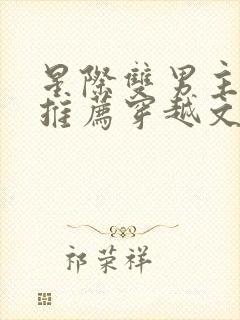 星際雙男主
推薦穿越文
祁荣祥